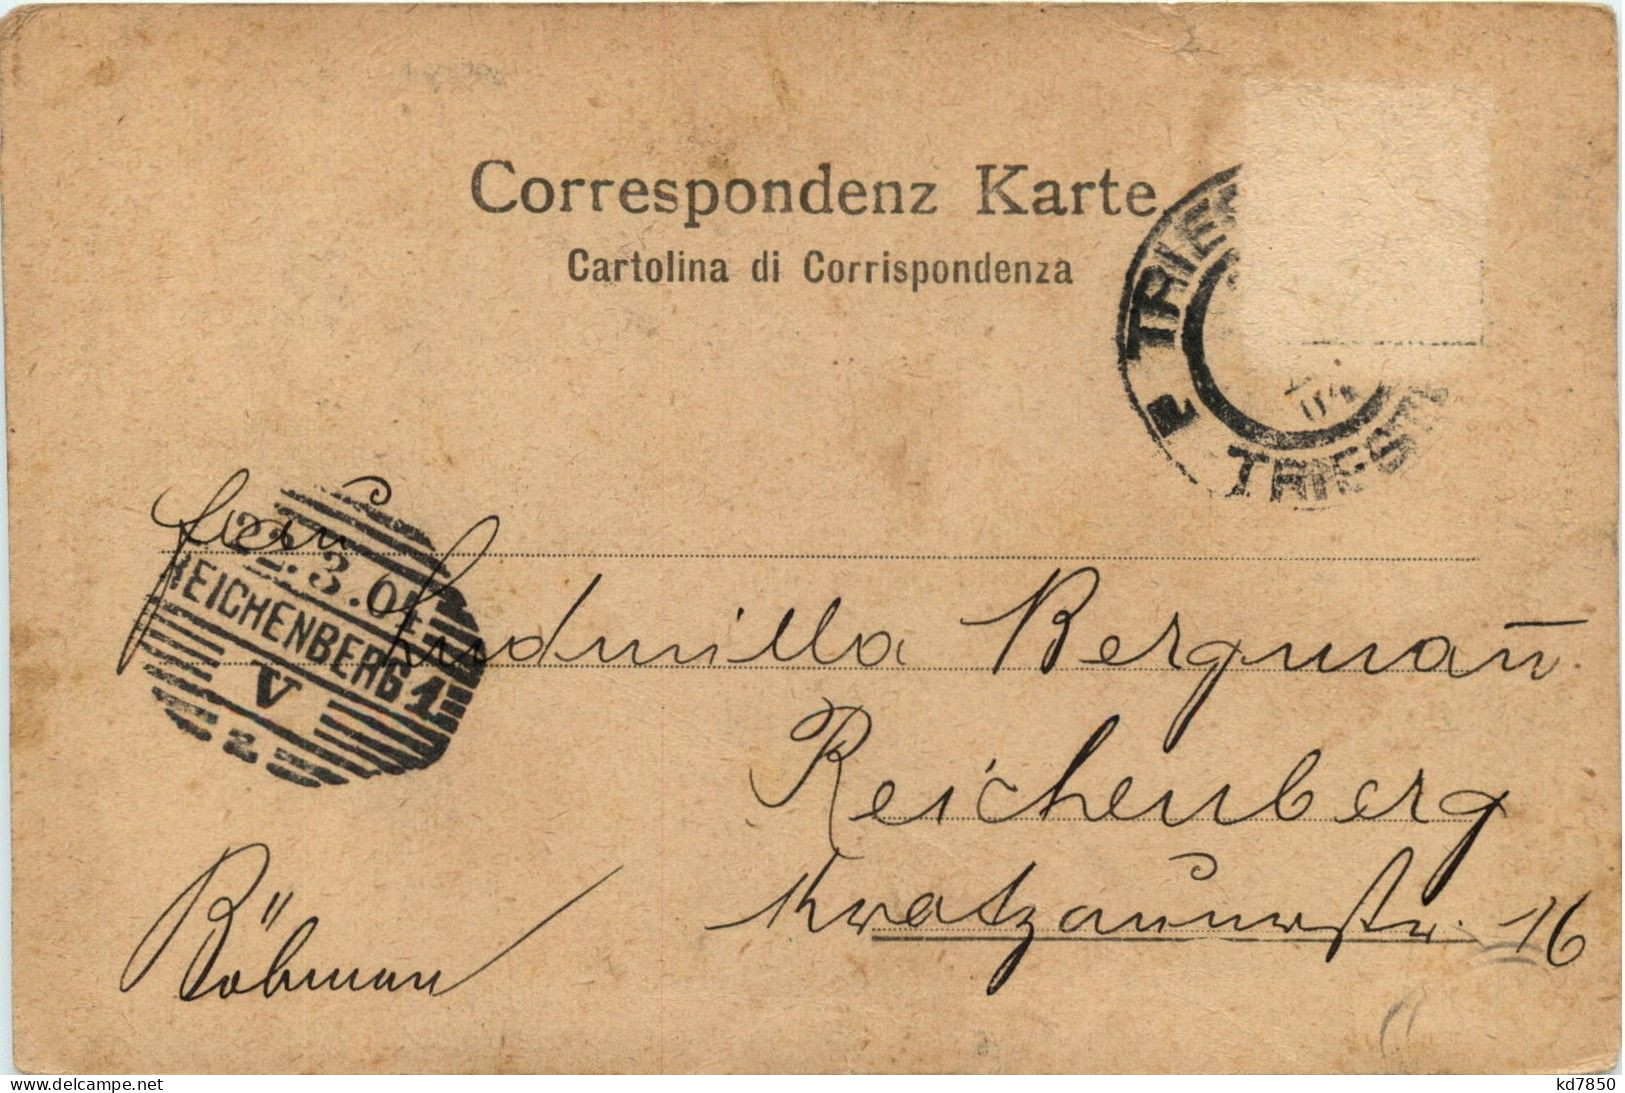 Correspondenz Karte
Cartolina di Corrispondenza
TRIES
2 TRIEST
04
22.3.04
REICHENBERG 1
V
2
Frau
Ludmilla Bergmañ
Reichenberg
Kratzauerstr. 16
Böhmen
delcampe.net
kd7850